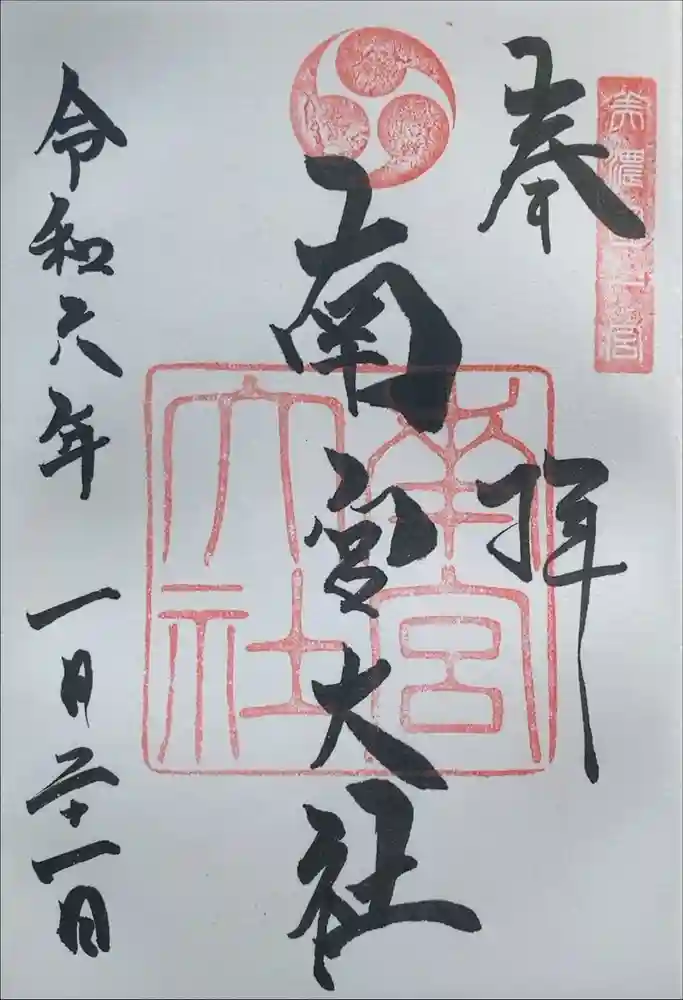 美濃國一宮
奉拝
南宮大社
南宮
大社
令和六年一月二十一日